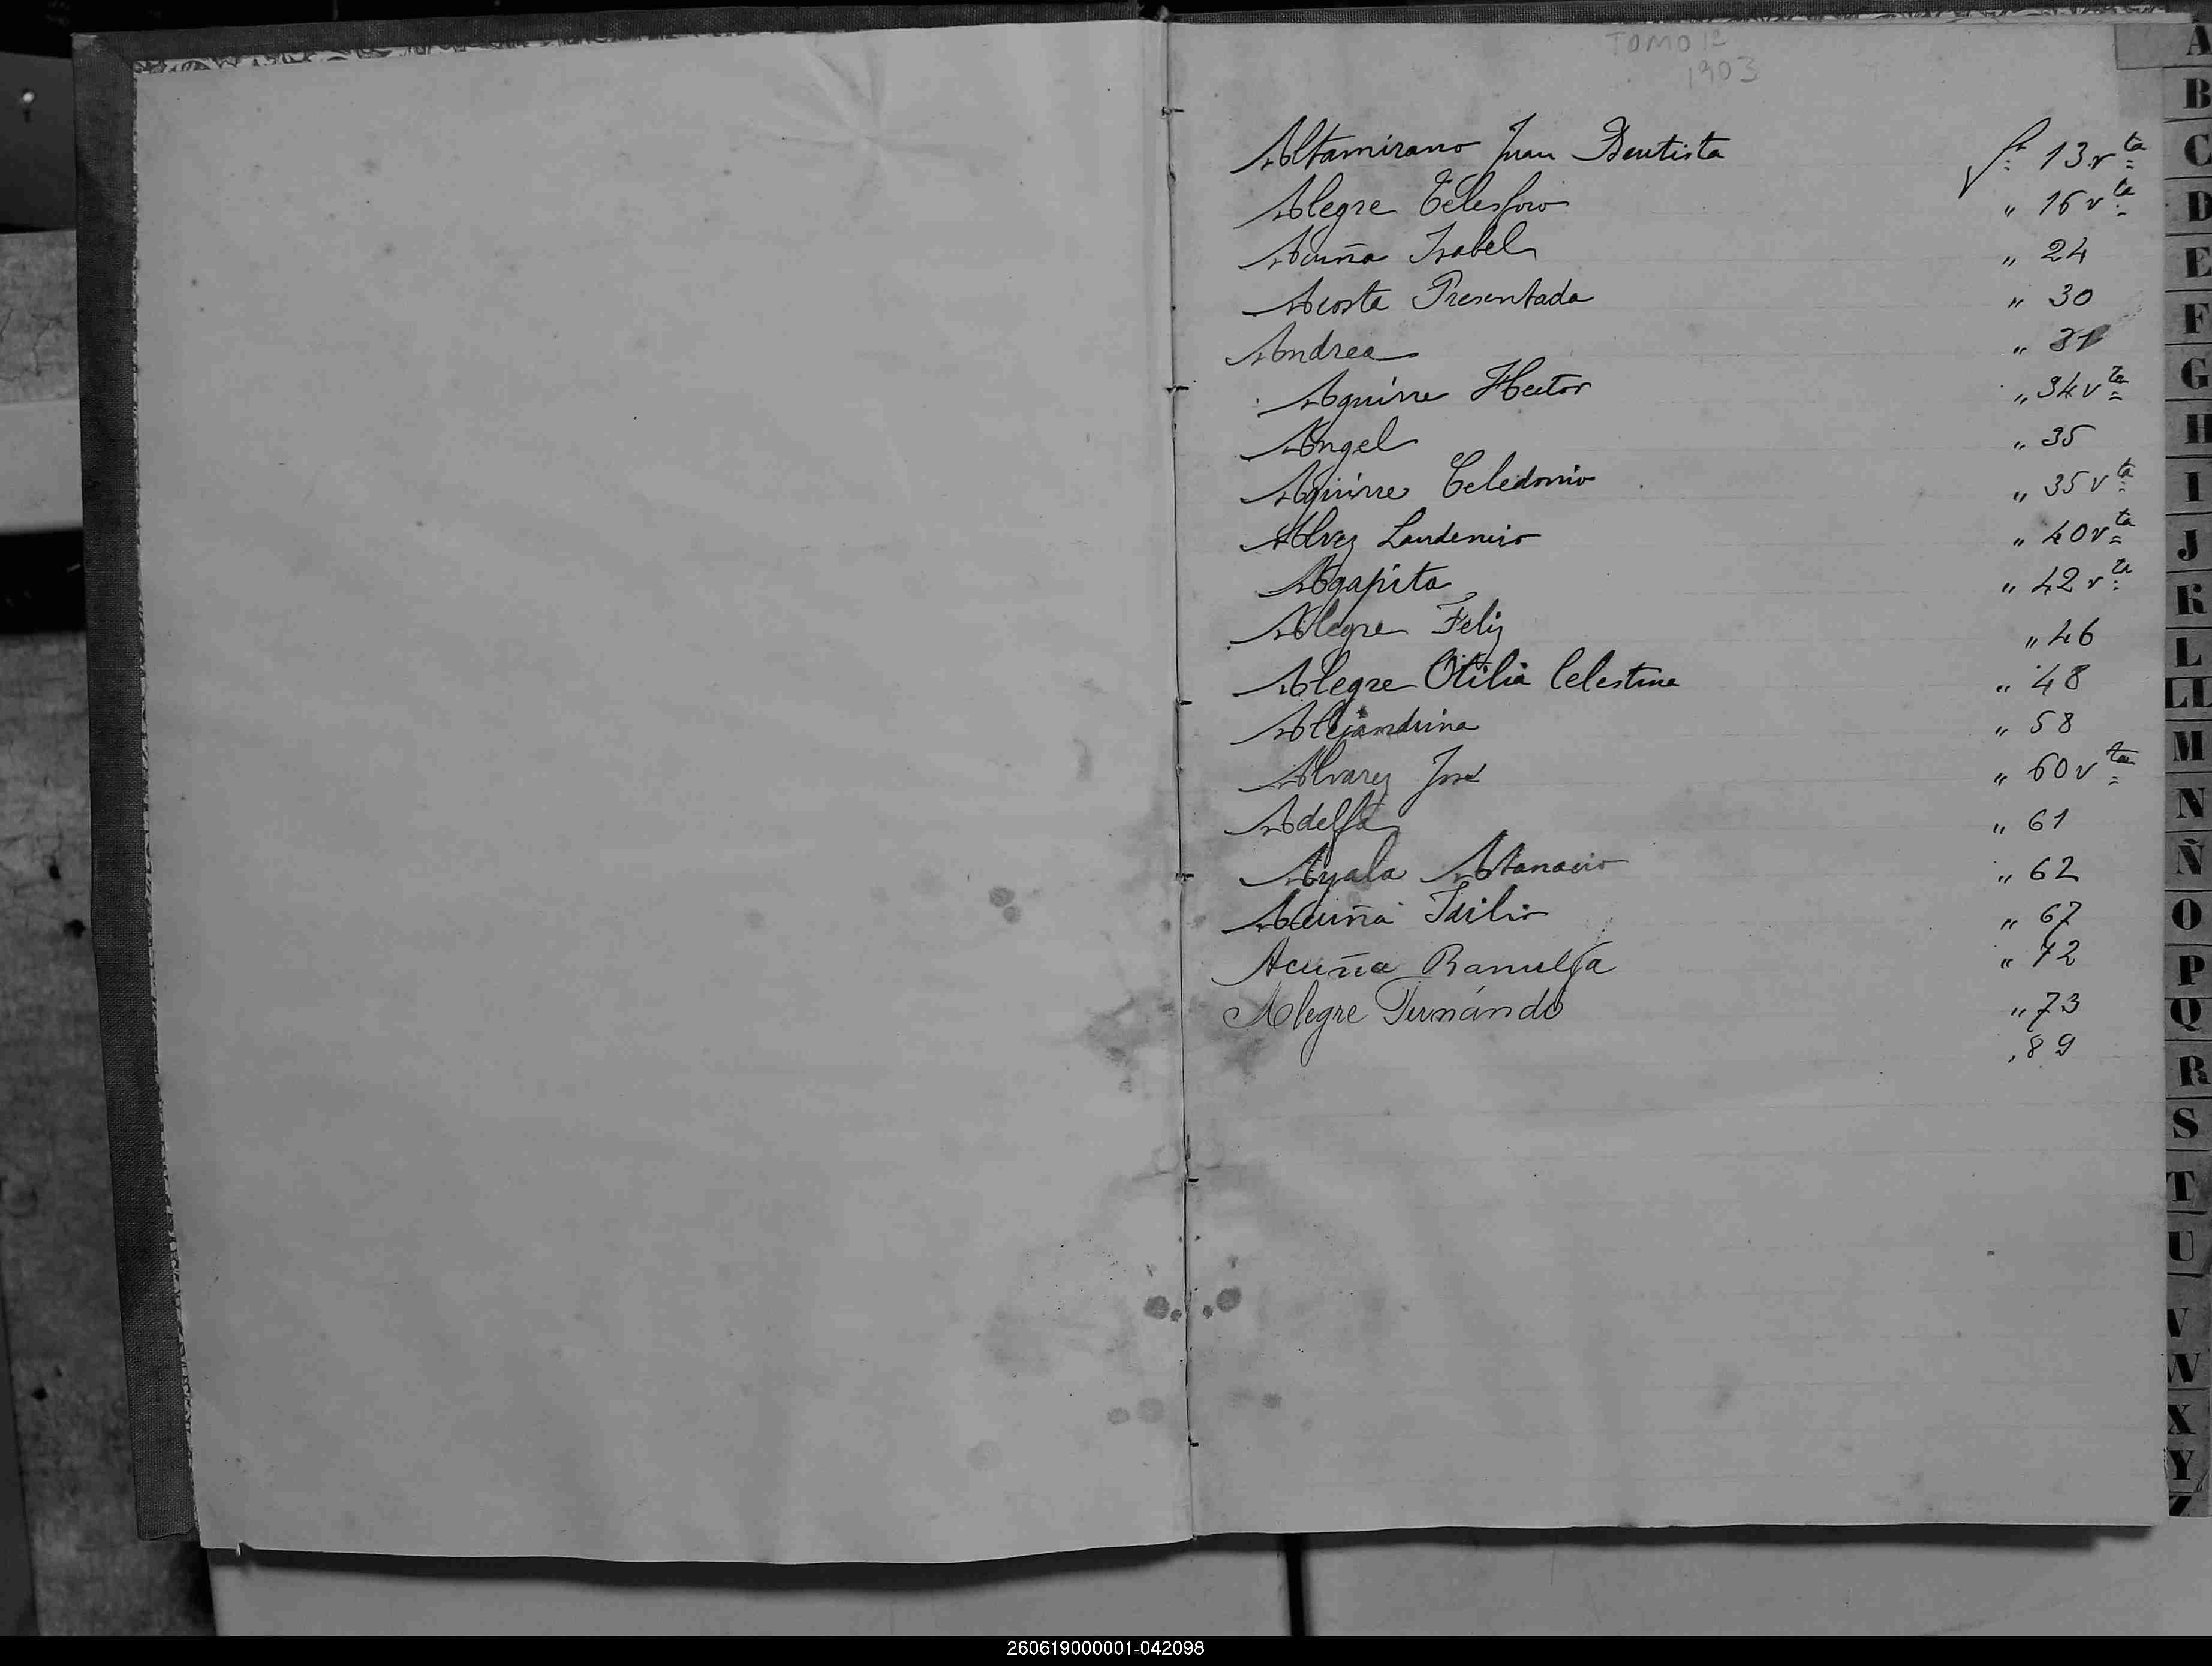 TOMO 12
1903
Altamirano Juan Bentista fs. 13 vta
Alegre Telesforo " 16 vta
Acuña Isabel " 24
Acosta Presentada " 30
Andrea " 31
Aguirre Hector " 34 vta
Angel " 35
Aguirre Celedonio " 35 vta
Alvez Laudemiro " 40 vta
Agapita " 42 vta
Alegre Feliz " 46
Alegre Otilia Celestina " 48
Alejandrina " 58
Alvarez José " 60 vta
Adelfa " 61
Ayala Atanacio " 62
Acuña Idilio " 67
Acuña Ranulfa " 72
Alegre Fernándo " 73
" 89
A
B
C
D
E
F
G
H
I
J
K
L
LL
M
N
Ñ
O
P
Q
R
S
T
U
V
W
X
Y
Z
260619000001-042098